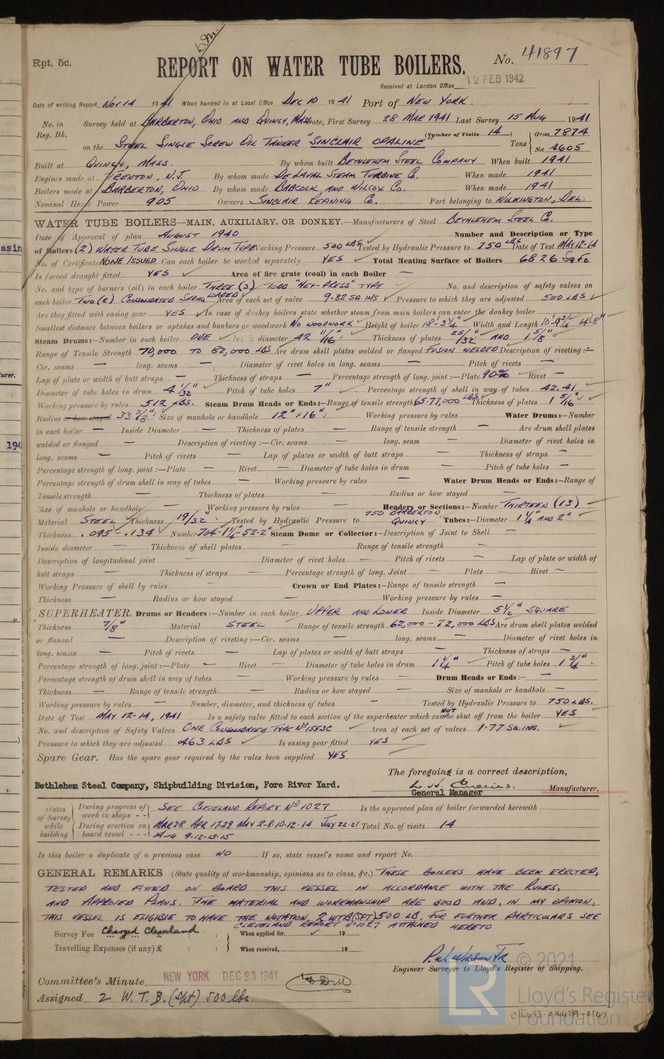 Rpt. 5c.
REPORT ON WATER TUBE BOILERS.
No. 41897
Received at London Office
12 FEB 1942
Date of writing Report Nov 14 1941 When handed in at Local Office Dec 10 1941 Port of New York
No. in Reg. Bk. Survey held at Barberton, Ohio and Quincy, Mass Date, First Survey 28 Mar 1941 Last Survey 15 Aug 1941
(Number of Visits 14)
on the Steel Single Screw Oil Tanker "Sinclair Opaline" Tons Gross 7874 Net 4605
Built at Quincy, Mass. By whom built Bethlehem Steel Company When built 1941
Engines made at Trenton, N.J. By whom made DeLaval Steam Turbine Co. When made 1941
Boilers made at Barberton, Ohio By whom made Babcock and Wilcox Co. When made 1941
Nominal Horse Power 905 Owners Sinclair Refining Co. Port belonging to Wilmington, Del.
WATER TUBE BOILERS—MAIN, AUXILIARY, OR DONKEY.—Manufacturers of Steel Bethlehem Steel Co.
Date of Approval of plan August 1940 Number and Description or Type
of Boilers (2) Water Tube Single Drum Type Working Pressure 500 lbs Tested by Hydraulic Pressure to 750 lbs Date of Test May 12-14
No. of Certificate None Issued Can each boiler be worked separately Yes Total Heating Surface of Boilers 6826 sq ft.
Is forced draught fitted Yes Area of fire grate (coal) in each Boiler —
No. and type of burners (oil) in each boiler Three (3) Todd "Hex-Press" Type No. and description of safety valves on
each boiler Two (2) Consolidated Spring Loaded Area of each set of valves 9.82 sq ins Pressure to which they are adjusted 500 lbs
Are they fitted with easing gear Yes In case of donkey boilers state whether steam from main boilers can enter the donkey boiler
Smallest distance between boilers or uptakes and bunkers or woodwork No woodwork Height of boiler 18'-3¼" Width and Length
Steam Drums:—Number in each boiler One Inside diameter 42 11/16" Thickness of plates 55/32" and 1 5/8"
Range of Tensile Strength 70,000 to 82,000 lbs Are drum shell plates welded or flanged Fusion welded Description of riveting:—
Cir. seams — long. seams — Diameter of rivet holes in — Pitch of rivets —
Lap of plate or width of butt straps — Thickness of straps — Percentage strength of long. joint:—Plate 90% Rivet —
Diameter of tube holes in drum 4 1/32" Pitch of tube holes 7" Percentage strength of shell in way of tubes 42.41
Working pressure by rules 512 lbs. Steam Drum Heads or Ends:—Range of tensile strength 65-77,000 lbs Thickness of plates 1 5/16"
Radius or how stayed 33 7/8" Size of manhole or handhole 12"×16" Working pressure by rules — Water Drums:—Number
in each boiler — Inside Diameter — Thickness of plates — Range of tensile strength — Are drum shell plates
welded or flanged — Description of riveting:—Cir. seams — long. seam — Diameter of rivet holes in
long. seams — Pitch of rivets — Lap of plates or width of butt straps — Thickness of straps —
Percentage strength of long. joint:—Plate — Rivet — Diameter of tube holes in drum — Pitch of tube holes —
Percentage strength of drum shell in way of tubes — Working pressure by rules — Water Drum Heads or Ends:—Range of
Tensile strength — Thickness of plates — Radius or how stayed —
Size of manhole or handhole — Working pressure by rules — Headers or Sections:—Number Thirteen (13)
Material Steel Thickness 19/32" Tested by Hydraulic Pressure to 750 Barberton Quincy Tubes:—Diameter 1¼" and 2"
Thickness .095 - .134 Number 704-1¼-52-2" Steam Dome or Collector:—Description of Joint to Shell —
Inside diameter — Thickness of shell plates — Range of tensile strength —
Description of longitudinal joint — Diameter of rivet holes — Pitch of rivets — Lap of plate or width of
butt straps — Thickness of straps — Percentage strength of long. joint — Plate — Rivet —
Working Pressure of shell by rules — Crown or End Plates:—Range of tensile strength —
Thickness — Radius or how stayed — Working pressure by rules —
SUPERHEATER. Drums or Headers:—Number in each boiler Upper and Lower Inside Diameter 5½" Square
Thickness 7/8" Material Steel Range of tensile strength 62,000 - 72,000 lbs Are drum shell plates welded
or flanged — Description of riveting:—Cir. seams — long. seams — Diameter of rivet holes in
long. seams — Pitch of rivets — Lap of plates or width of butt straps — Thickness of straps —
Percentage strength of long. joint:—Plate — Rivet — Diameter of tube holes in drum 1¼" Pitch of tube holes 1¾"
Percentage strength of drum shell in way of tubes — Working pressure by rules — Drum Heads or Ends:—
Thickness — Range of tensile strength — Radius or how stayed — Size of manhole or handhole —
Working pressure by rules — Number, diameter, and thickness of tubes — Tested by Hydraulic Pressure to 750 lbs.
Date of Test May 12-14, 1941 Is a safety valve fitted to each section of the superheater which can not be shut off from the boiler Yes
No. and description of Safety Valves One Consolidated Type No 1553C Area of each set of valves 1.77 sq. ins.
Pressure to which they are adjusted 463 lbs Is easing gear fitted Yes
Spare Gear. Has the spare gear required by the rules been supplied Yes
The foregoing is a correct description,
Bethlehem Steel Company, Shipbuilding Division, Fore River Yard.
General Manager Manufacturer.
Dates of Survey while building
During progress of work in shops - - See Cleveland Report No 1027 Is the approved plan of boiler forwarded herewith
During erection on board vessel - - - Mar 28 Apr 17.29 May 2.8.10.12.14 July 22.21 Aug 9.12.13.15 Total No. of visits 14
Is this boiler a duplicate of a previous case No If so, state vessel's name and report No.
GENERAL REMARKS (State quality of workmanship, opinions as to class, &c.) These boilers have been erected,
tested and fitted on board this vessel in accordance with the Rules,
and approved plans. The material and workmanship are good and, in my opinion,
this vessel is eligible to have the notation 2 WTB (SPT) 500 lb. For further particulars see
Cleveland Report No 1027 attached hereto
Survey Fee Charged Cleveland When applied for, 19
Travelling Expenses (if any) £ : : When received, 19
Engineer Surveyor to Lloyd's Register of Shipping.
Committee's Minute NEW YORK DEC 23 1941
Assigned 2 W.T.B. (Spt) 500 lbs.
© 2021
LR
Lloyd's Register
Foundation